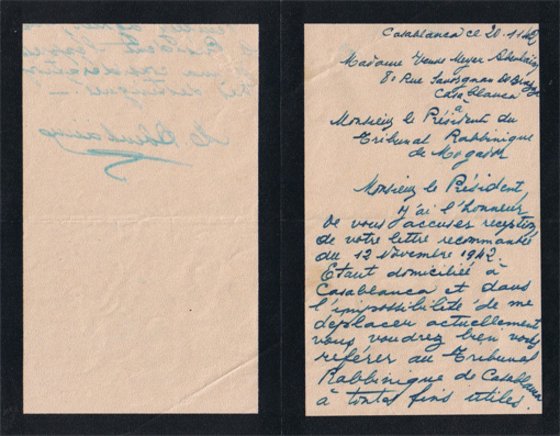 Casablanca ce 20.11.42
Madame Veuve Meyer
8 Rue Savorgnan de Brazza
Casablanca
à
Monsieur le Président du
Tribunal Rabbinique
de Mogador
Monsieur le Président,
J'ai l'honneur
de vous accuser réception
de votre lettre recommandée
du 12 Novembre 1942.
Etant domiciliée à
Casablanca et dans
l'impossibilité de me
déplacer actuellement
vous voudrez bien vous
référer au Tribunal
Rabbinique de Casablanca
à toutes fins utiles.